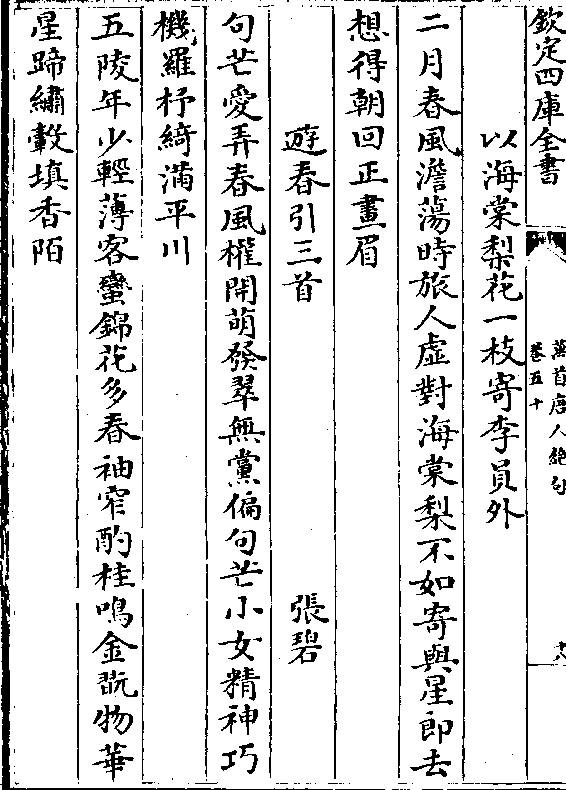 欽定四庫全書
萬首唐人絶句
卷五十
十八
以海棠梨花一枝寄李員外
二月春風澹蕩時旅人虛對海棠梨不如寄與星郎去
想得朝回正畫眉
遊春引三首 張碧
句芒愛弄春風權開萌發翠無黨偏句芒小女精神巧
機羅杼綺滿平川
五陵年少輕薄客蠻錦花多春袖窄酌桂鳴金翫物華
星蹄繡轂填香陌